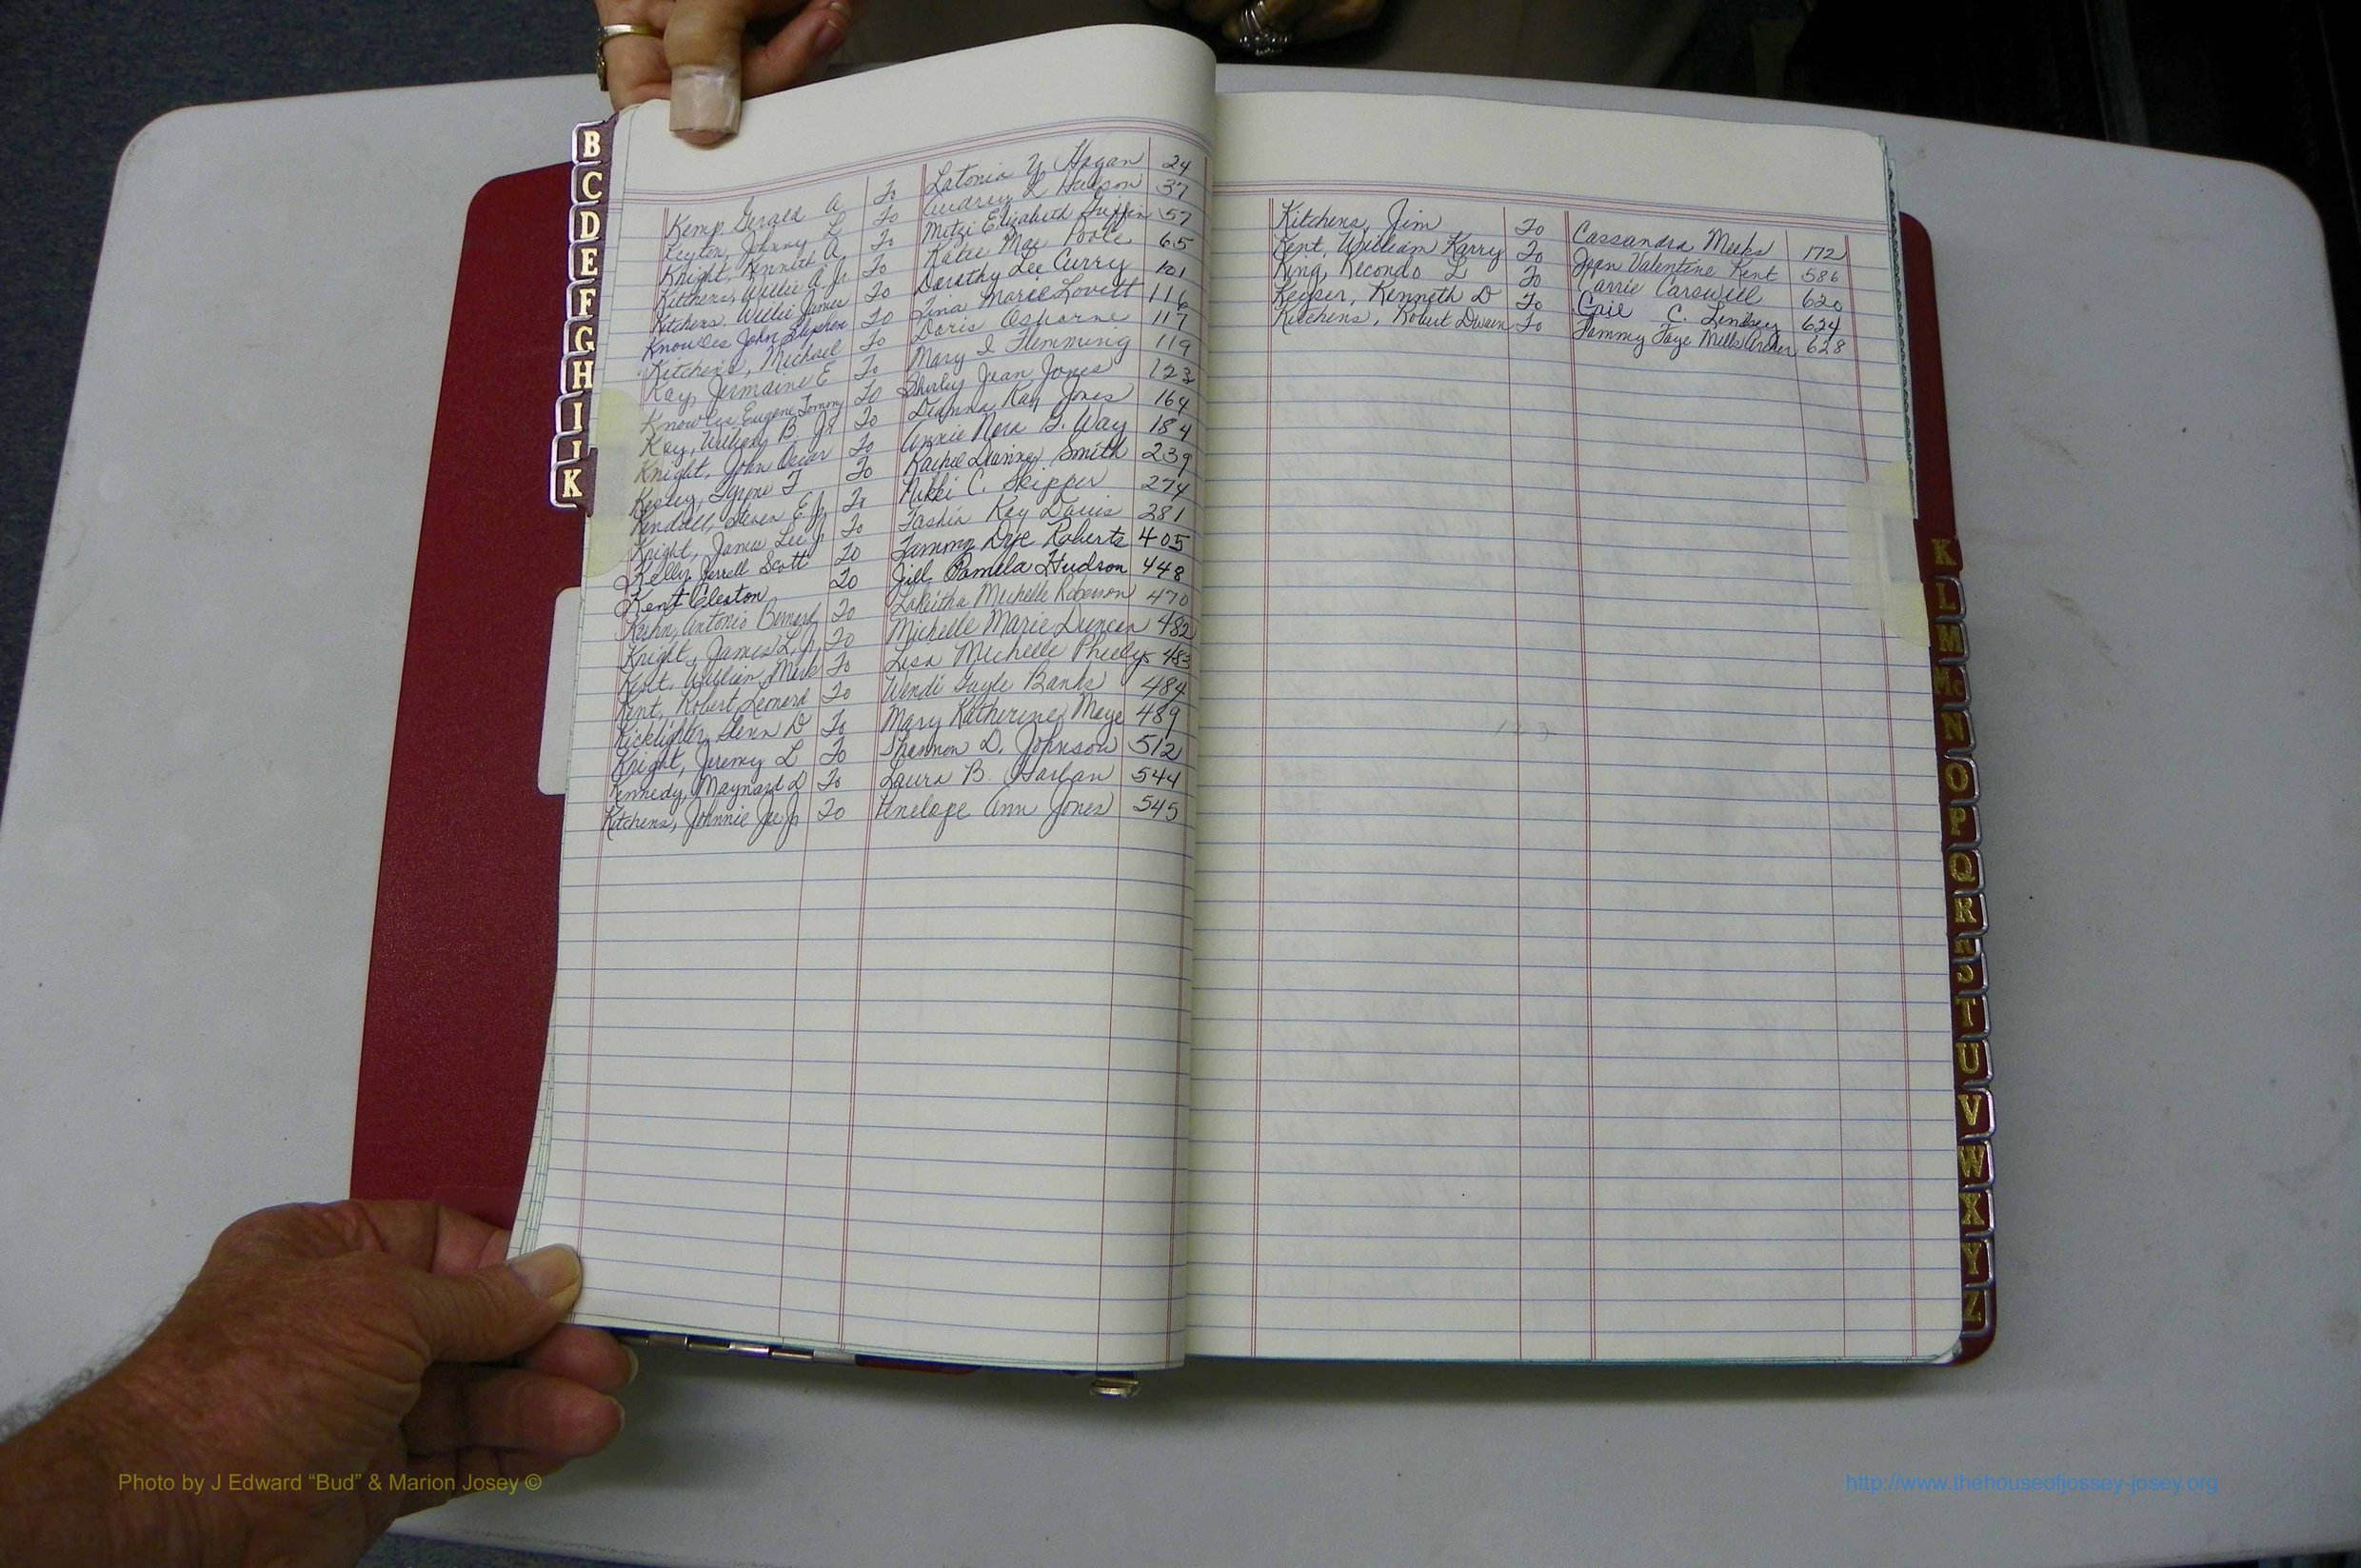 Kemp Gerald A To Latonia Y Hogan 24
Keyton, Johnny L To Audrey L Hudson 37
Knight, Kenneth A. To Mitzi Elizabeth Griffin 57
Kitchens, Willie A. Jr To Katie Mae Poole 65
Kitchens, Willie James To Dorothy Lee Curry 101
Knowles John Stephen To Tina Maree Lovett 116
Kitchens, Michael To Doris Osborne 117
Kay, Jermaine E To Mary I Flemming 119
Knowles Eugene Tommy To Shirley Jean Jones 123
Kay, William B. Jr To Deanna Kay Jones 164
Knight, John Oscar To Annie Nora G. Way 184
T To Rachel Dianne Smith 239
Kendall, Steven E Jr To Nikki C. Skipper 274
Knight, James Lee Jr To Tashia Kay Davis 281
Kelly, Jerrell Scott To Tammy Dye Roberts 405
Kent Cleston To Jill Pamela Hudson 448
Antonio Bernard To Lakeitha Michelle Roberson 470
Knight, James L. Jr To Michelle Marie Duncan 482
Kent, William Mark To Lisa Michelle 483
Kent, Robert Leonard To Wendi Gayle Banks 484
Kicklighter, Glenn D To Mary Katherine Maye 489
Knight, Jeremy L To Shannon D. Johnson 512
Kennedy, Maynard D To Laura B. Harlan 544
Kitchens, Johnnie Lee Jr To Penelope Ann Jones 545
Kitchens, Jim To Cassandra Meeks 172
Kent, William Harry To Joan Valentine Kent 586
King, Recondo L To Carrie Carswell 620
Keyser, Kenneth D To Gail C. Lindsey 624
Kitchens, Robert Dwain To Tammy Faye Mills Archer 628
123
B
C
D
E
F
G
H
I
J
K
K
L
M
Mc
N
O
P
Q
R
S
T
U
V
W
X
Y
Z
Photo by J Edward “Bud” & Marion Josey ©
http://www.thehouseofjossey-josey.org